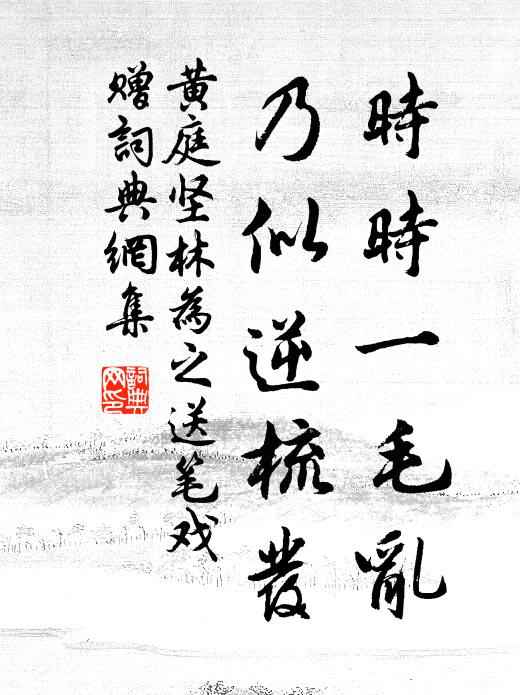 時時一毛亂
乃似逆梳髮
黄庭坚林為之送笔戏
赠詞典網集
詞典
网印